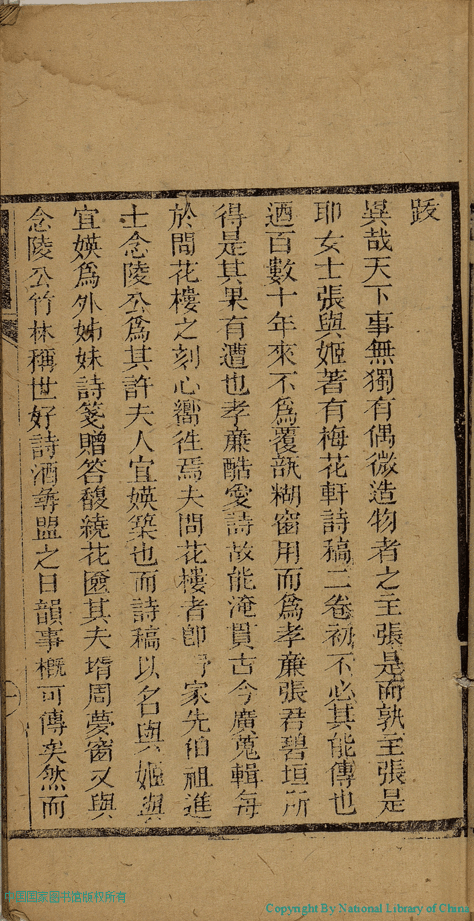 跋
異哉天下事無獨有偶微造物者之主張是而孰主張是
耶女士張與姬著有梅花軒詩稿二卷初不必其能傳也
迺百數十年來不爲覆瓿糊窗用而爲孝亷張君碧垣所
得是其果有遭也孝亷酷愛詩故能淹貫古今廣蒐輯每
於問花樓之刻心嚮徃焉夫問花樓者卽 家先伯祖進
士念陵公爲其許夫人宜媖築也而詩稿以名與姬與
宜媖爲外姊妹詩箋贈答馥繞花匳其夫壻周夢窗又與
念陵公竹林稱世好詩酒尋盟之日韻事概可傳矣然而
一
中国国家图书馆版权所有
Copyright By National Library of China